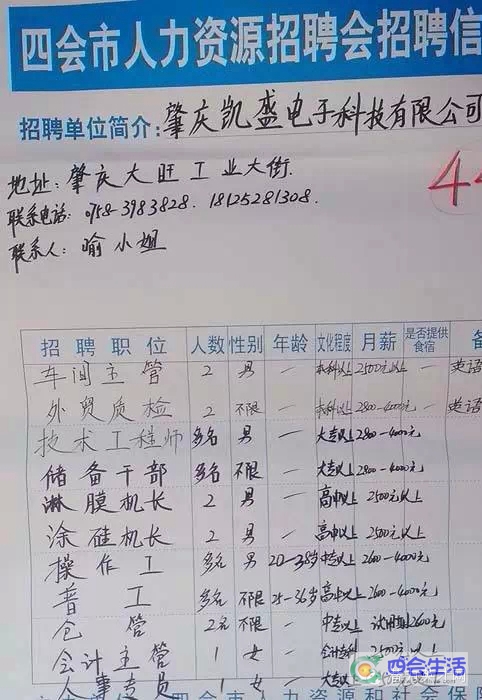 四会市人力资源招聘会招聘信
招聘单位简介:肇庆凯盛电子科技有限公司
地址:肇庆大旺工业大街.
联系电话:0758-3983828. 18125281308.
联系人:喻小姐
招聘职位 人数 性别 年龄 文化程度 月薪 是否提供食宿 备
车间主管 2 男 — 本科以上 2500元以上 — 英语
外贸质检 2 不限 — 本科以上 2800-4000元 — 英语
技术工程师 多名 男 — 大专以上 2800-4000元
储备干部 多名 不限 — 大专以上 2800-4000元
淋膜机长 2 男 — 高中以上 2500元以上
涂硅机长 2 男 — 高中以上 2500元以上
操作工 多名 男 20-38岁 中专以上 2600-4000元
普工 多名 不限 25-36岁 高中以上 2600-4000元
仓管 2名 不限 — 中专以上 试用期2600元
会计主管 1 女 — 会计专科 2500元以上
事专员 1 女 — 大专以上
四会生活
四会市人力资源和社会保